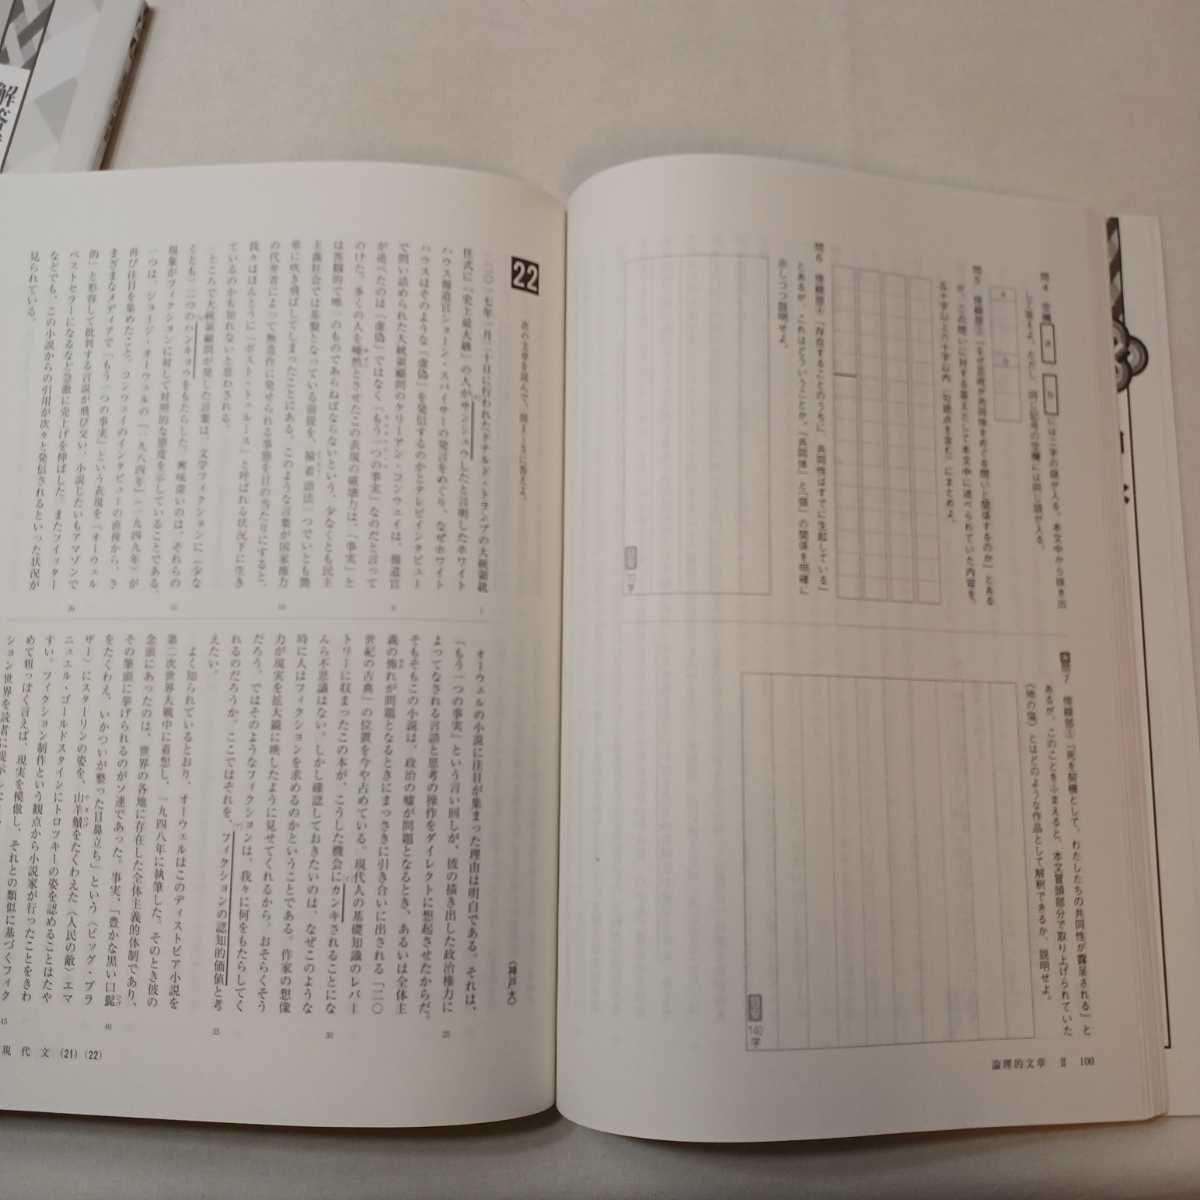 解答
問4 空欄
a
b
には二字の語が入る。本文中から抜き出
して答えよ。ただし、同じ記号の空欄には同じ語が入る。
a
b
が、この問いに対する答えとして本文中に述べられていた内容を、
五十字以上六十字以内(句読点を含む)にまとめよ。
問6 傍線部④「存在することのうちに、共同性はすでに生起している」
とあるが、これはどういうことか。「共同体」と「個」の関係を明確に
示しつつ説明せよ。
問7 傍線部⑤「死を契機として、わたしたちの共同性が露呈される」と
あるが、このことをふまえると、本文冒頭部分で取り上げられていた
《地の塩》とはどのような作品として解釈できるか、説明せよ。
140字
論理的文章 Ⅱ 100
22
次の文章を読んで、後の問いに答えよ。
(神戸大)
二〇一七年一月二十日に行われたドナルド・トランプの大統領就
任式に「史上最大級」の人がサンシュウしたと言明したホワイト
ハウス報道官ショーン・スパイサーの発言をめぐり、なぜホワイト
ハウスはそのような「虚偽」を発信するのかとテレビインタビュー
で問い詰められた大統領顧問のケリーアン・コンウェイは、報道官
が述べたのは「虚偽」ではなく「もう一つの事実」なのだと言って
のけた。多くの人を唖然とさせたこの表現の破壊力は、「事実」と
は客観的で唯一のものであらねばならないという、少なくとも民主
主義社会では基盤となっている前提を、撞着語法一つでいとも簡
単に吹き飛ばしてしまったことにある。このような言葉が国家権力
の代弁者によって無造作に発せられる事態を目の当たりにすると、
我々はほんとうに「ポスト・トゥルース」と呼ばれる状況下に生き
ているのかも知れないと思わされる。
ところで大統領顧問が発した言葉は、文学フィクションに(少な
くとも)二つのハンキョウをもたらした。興味深いのは、それらの
現象がフィクションに対して対照的な態度を示していることである。
一つは、ジョージ・オーウェルの『一九八四年』(一九四九年)が
再び注目を集めたこと。コンウェイのインタビューの直後から、さ
まざまなメディアで「もう一つの事実」という表現を「オーウェル
的」と形容して批判する言説が飛び交い、小説じたいもアマゾンで
ベストセラーになるなど急激に売上げを伸ばした。またツイッター
などでも、この小説からの引用が次々と発信されるといった状況が
見られている。
オーウェルの小説に注目が集まった理由は明白である。それは、
「もう一つの事実」という言い回しが、彼の描き出した政治権力に
よってなされる言語と思考の操作をダイレクトに想起させたからだ。
そもそもこの小説は、政治の嘘が問題となるとき、あるいは全体主
義の怖れが問題となるときにまっさきに引き合いに出される「二〇
世紀の古典」の位置を今や占めている。現代人の基礎知識のレパー
トリーに収まったこの本が、こうした機会にカンキされることにな
んら不思議はない。しかし確認しておきたいのは、なぜこのような
時に人はフィクションを求めるのかということである。作家の想像
力が現実を拡大鏡に映したように見せてくれるから。おそらくそう
だろう。ではそのようなフィクションは、我々に何をもたらしてく
れるのだろうか。ここではそれを、フィクションの認知的価値と考
えたい。
よく知られているとおり、オーウェルはこのディストピア小説を
第二次世界大戦中に着想し、一九四八年に執筆した。そのとき彼の
念頭にあったのは、世界の各地に存在した全体主義的体制であり、
その筆頭に挙げられるのがソ連であった。事実、「豊かな黒い口髭
をたくわえ、いかついが整った目鼻立ち」という〈ビッグ・ブラ
ザー〉にスターリンの姿を、山羊髭をたくわえた〈人民の敵〉エマ
ニュエル・ゴールドスタインにトロツキーの姿を認めることはたや
すい。フィクション制作という観点から小説家が行ったことをきわ
めて粗っぽく言えば、現実を模倣し、それとの類似に基づくフィク
現代文 (21) (22)